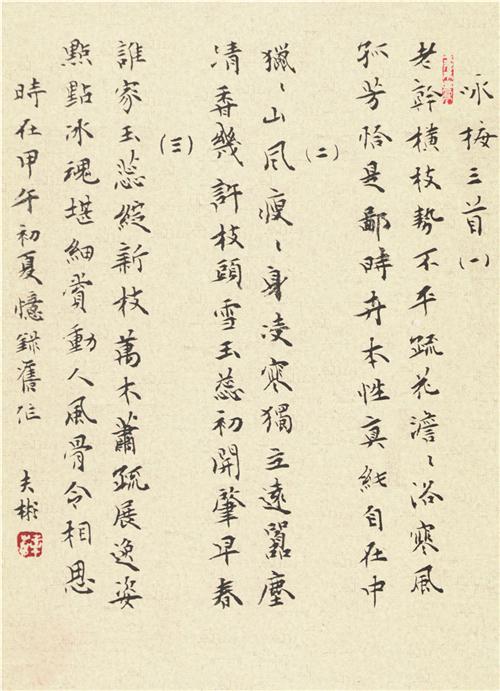 咏梅三首(一)
老幹橫枝勢不平疏花澹、浴寒風
孤芳恰是鄙時卉本性真純自在中
(二)
獵、山风瘦、身凌寒獨立遠囂塵
清香幾許枝頭雪玉蕊初開肇早春
(三)
誰家玉蕊綻新枝萬木蕭疏展逸姿
點點冰魂堪細賞動人風骨令相思
時在甲午初夏憶錄舊作 夫彬